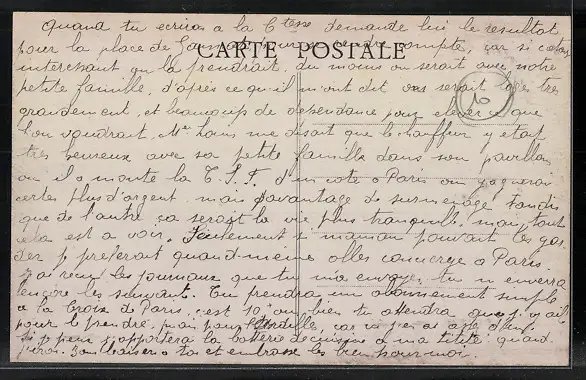 Quand tu ecriras a la Ctesse demande lui le resultat
pour la place de pour rendre compte, car si c'etait
interessant on la prendrait, du moins on serait avec notre
petite famille, d'après ce qu'il m'ont dit ons serait loge tres
CARTE POSTALE
10
grandement, et beaucoup de dependance pour elever ce que
l'on voudrait. Me Louis me disait que le chauffeur y etait
tres heureux avec sa petite famille dans son pavillon
ou il a monte la T.S.F. d'un cote a Paris on gagnerai
certes plus d'argent mais d'avantage de surmenage tandis
que de l'autre sa serait la vie plus tranquille, mais tout
cela est a voir. Seulement si maman pouvait les gar-
der je prefererait quand-meme aller concierge a Paris.
J'ai reçu les journaux que tu ma envoyer, tu m enverra
encore les suivant. Tu prendra un abonnement simple
a la Croix de Paris, cest 10, ou bien tu attendra que j'y aille
pour le prendre, mais pour car
si je peux j'apporterai la batterie de cuisine a ma titite quand
j'irai. Bons baisers a toi et embrasse les bien pour moi.